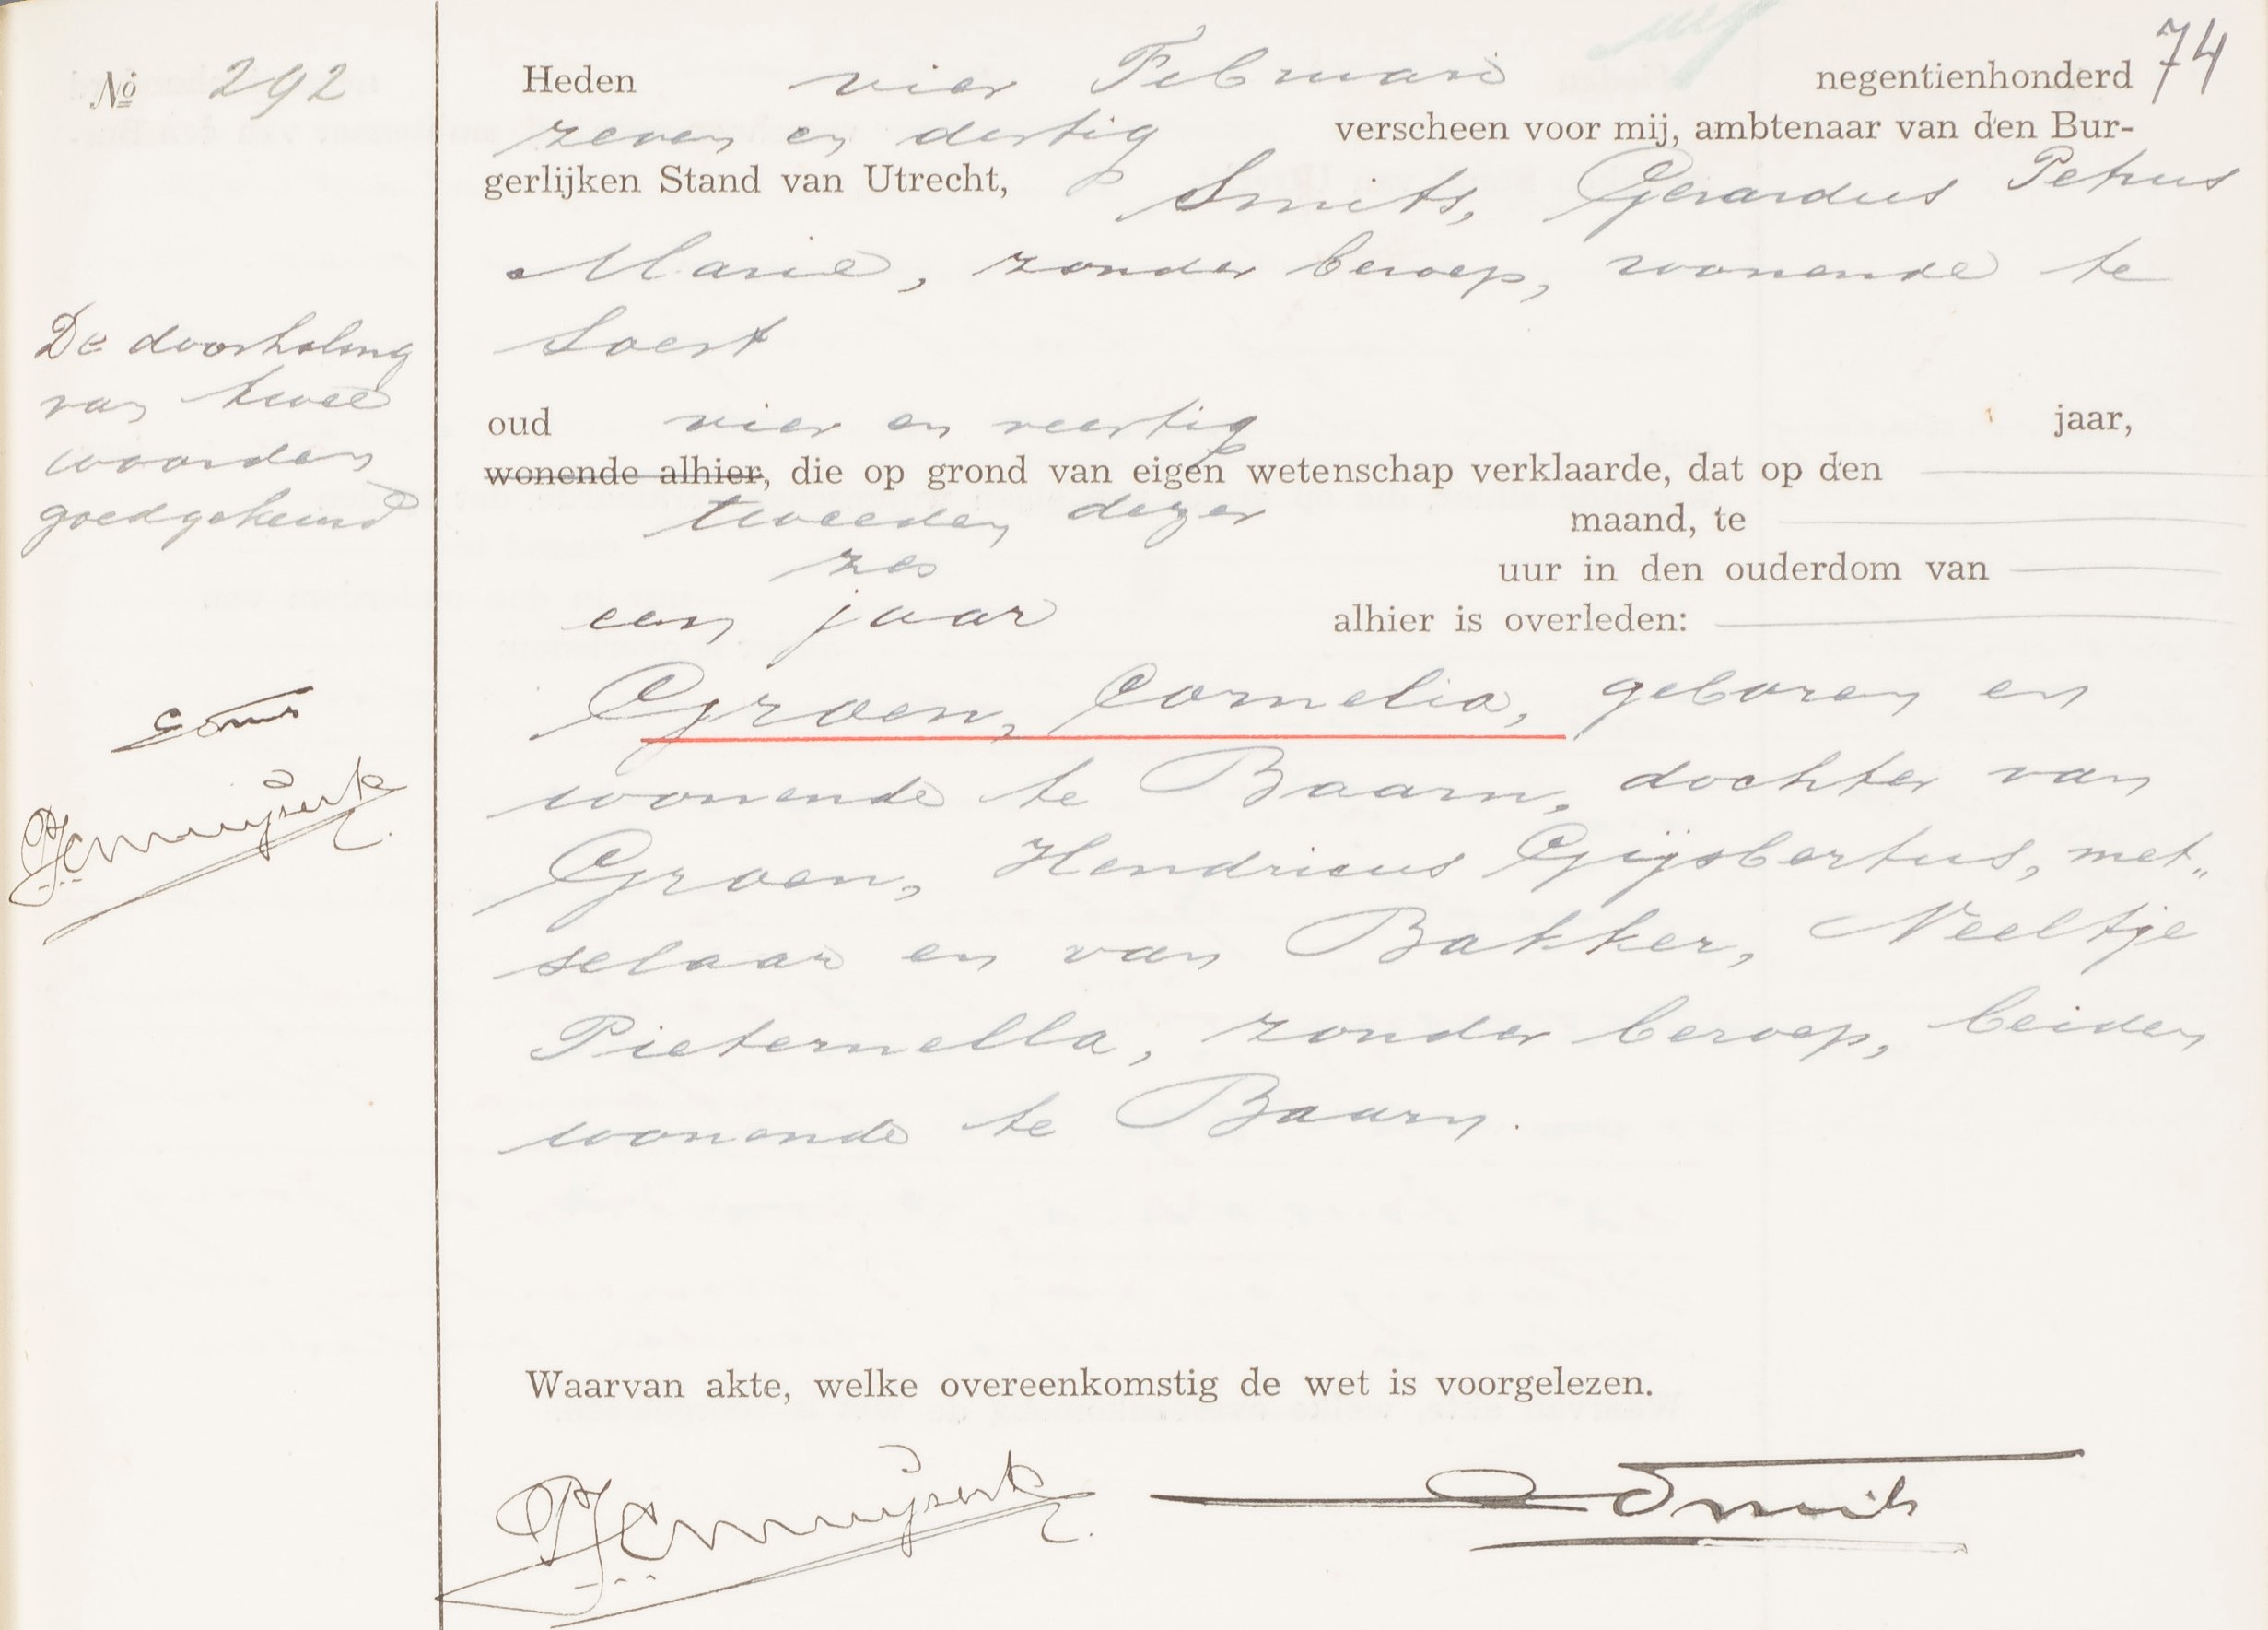 74
Nº 292
Heden vier Februari negentienhonderd
zeven en dertig verscheen voor mij, ambtenaar van den Bur-
gerlijken Stand van Utrecht, Smits, Gerardus Petrus
Marie, zonder beroep, wonende te
Soest
oud vier en veertig jaar,
wonende alhier, die op grond van eigen wetenschap verklaarde, dat op den
tweeden dezer maand, te
zes uur in den ouderdom van
een jaar alhier is overleden:
Groen, Cornelia, geboren en
wonende te Baarn, dochter van
Groen, Hendricus Gijsbertus, met„
selaar en van Bakker, Neeltje
Pieternella, zonder beroep, beiden
wonende te Baarn.
Waarvan akte, welke overeenkomstig de wet is voorgelezen.
Smits
De doorhaling
van twee
woorden
goedgekeurd